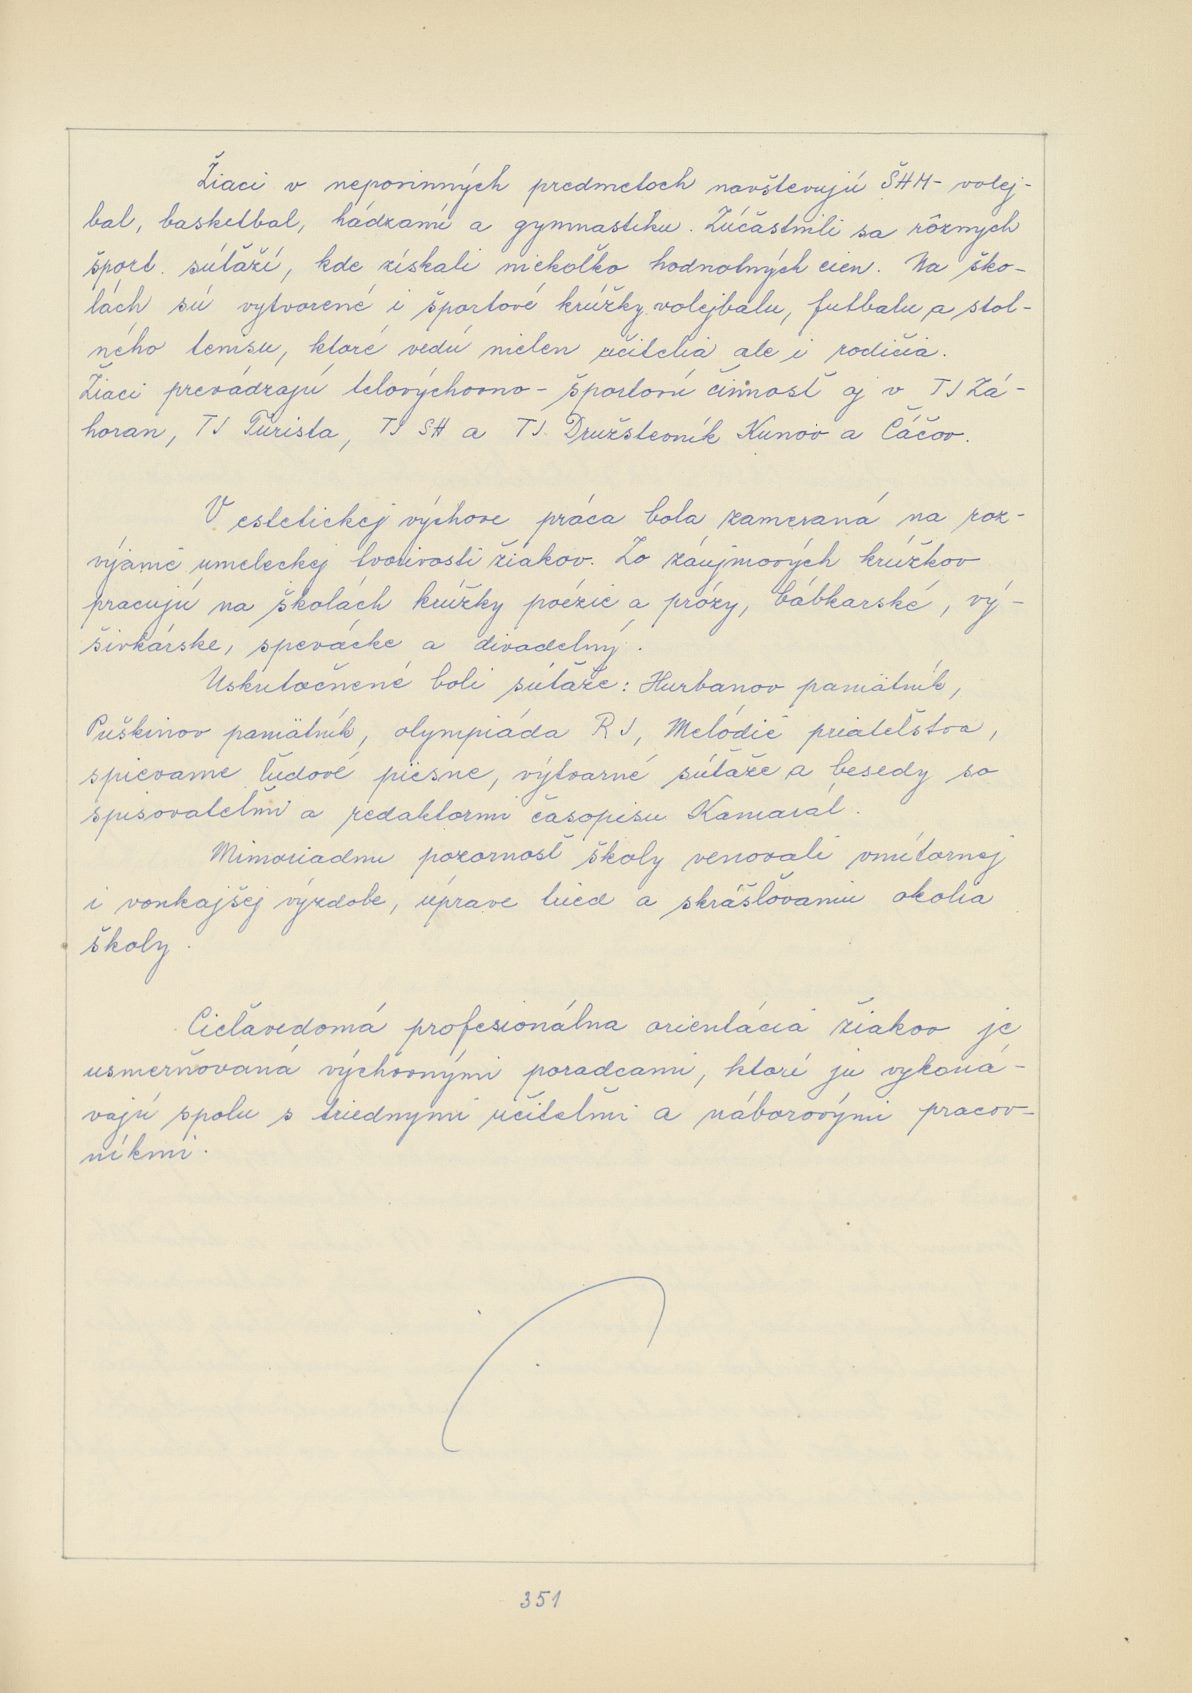 Žiaci v nepovinných predmetoch navštevujú ŠHH - volej-
bal, basketbal, hádzanú a gymnastiku. Zúčastnili sa rôznych
šport. súťaží, kde získali niekoľko hodnotných cien. Na ško-
lách sú vytvorené i športové krúžky volejbalu, futbalu a stol-
ného tenisu, ktoré vedú nielen učitelia ale i rodičia.
Žiaci prevádzajú telovýchovno - športovú činnosť aj v TJ Zá-
horan, TJ Turista, TJ SH a TJ Družstevník Kunov a Čáčov.
V estetickej výchove práca bola zameraná na roz-
výjanie umeleckej tvorivosti žiakov. Zo záujmových krúžkov
pracujú na školách krúžky poézie a prózy, bábkarské, vý-
šivkárske, spevácke a divadelný.
Uskutočnené boli súťaže: Hurbanov pamätník,
Puškinov pamätník, olympiáda RJ, Melódie priateľstva,
spievame ľudové piesne, výtvarné súťaže a besedy so
spisovateľmi a redaktormi časopisu Kamarát.
Mimoriadnu pozornosť školy venovali vnútornej
i vonkajšej výzdobe, úprave tried a skrášľovaniu okolia
školy.
Cieľavedomá profesionálna orientácia žiakov je
usmerňovaná výchovnými poradcami, ktorí ju vykoná-
vajú spolu s triednymi učiteľmi a náborovými pracov-
níkmi.
351